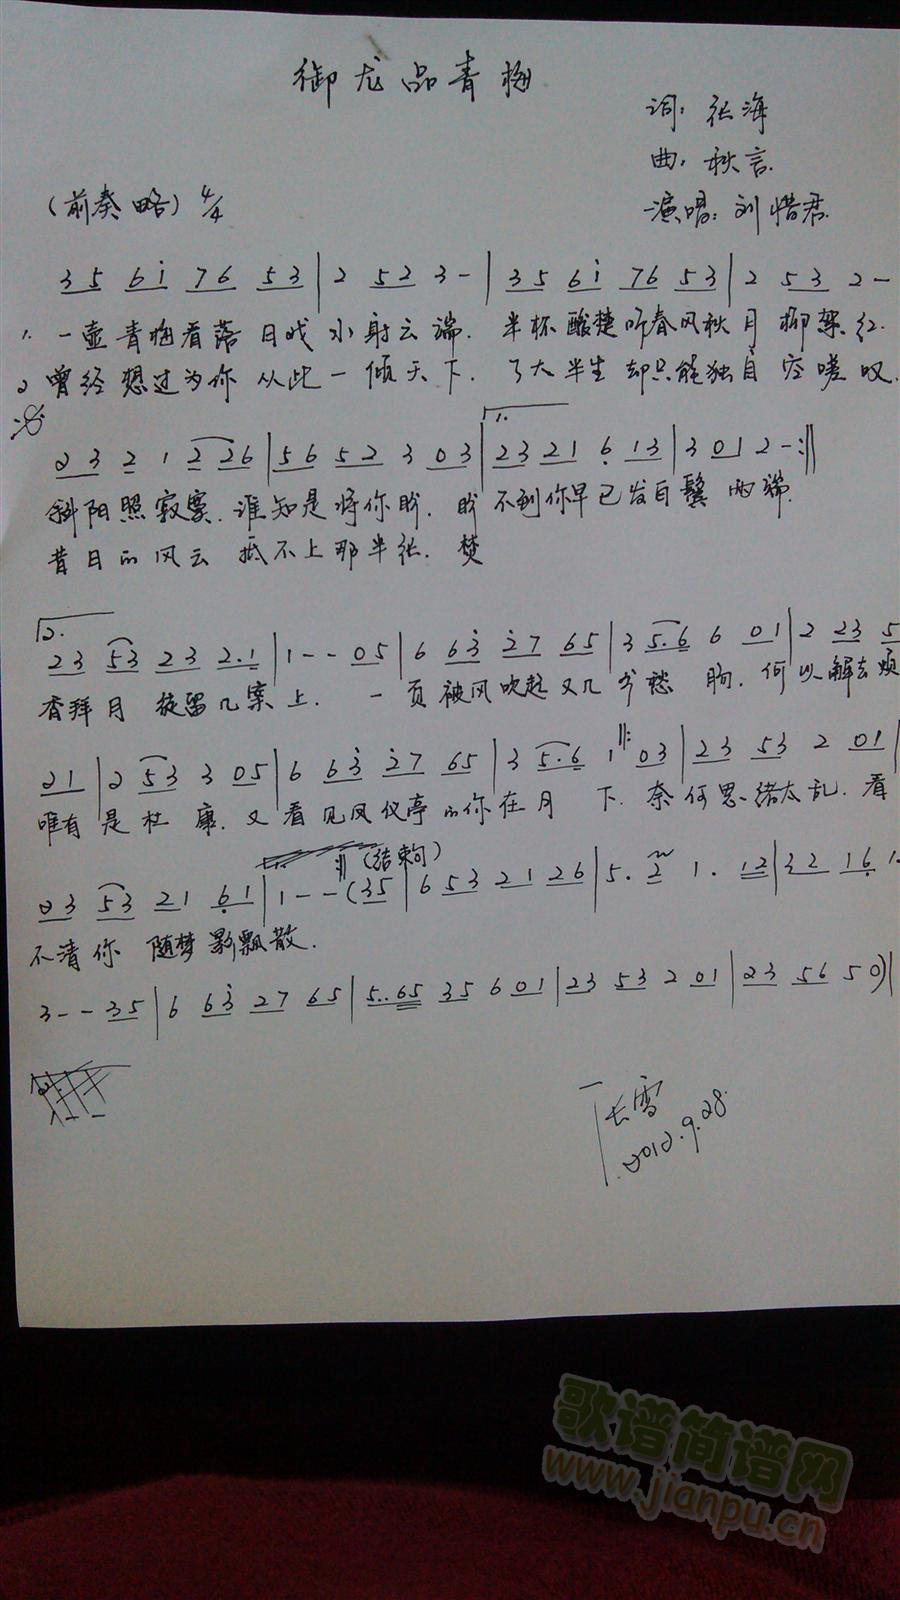 御龙品青梅
词: 张海
曲: 秋言
(前奏略) 4/4
演唱: 刘惜君
3 5 6 i 7 6 5 3 | 2 5 2 3 - | 3 5 6 i 7 6 5 3 | 2 5 3 2 -
1. 一壶青梅看落日残水射云端. 半杯酸楚听春风秋月柳絮红.
2 曾经想过为你从此一倾天下. 了大半生却只能独自空嗟叹.
2 3 2 1 2 2 6 | 5 6 5 2 3 0 3 | 1. 2 3 2 1 6 1 3 | 3 0 1 2 - :||
斜阳照寂寞. 谁知是将你盼. 盼不到你早已发白鬓两端.
昔日的风云抵不上那半张. 焚
2. 2 3 5 3 2 3 2 . 1 | 1 - - 0 5 | 6 6 3 2 7 6 5 | 3 5 . 6 6 0 1 | 2 2 3 5
香拜月 按留几案上. 一页被风吹起又几多愁肠. 何以解去烦
2 1 | 2 5 3 3 0 5 | 6 6 3 2 7 6 5 | 3 5 . 6 1 ||: 0 3 | 2 3 5 3 2 0 1 |
唯有是杜康. 又看见凤仪亭的你在月下. 奈何思绪太乱. 看
(结束句)
2 3 5 3 2 1 6 1 | 1 - - (3 5 | 6 5 3 2 1 2 6 | 5 . 2 1 . 1 2 | 3 2 1 6 1 .
不清你 随梦影飘散.
3 - - 3 5 | 6 6 3 2 7 6 5 | 5 . . 6 5 3 5 6 0 1 | 2 3 5 3 2 0 1 | 2 3 5 6 5 0) |
长雪
2012.9.28.
歌谱简谱网
www.jianpu.cn